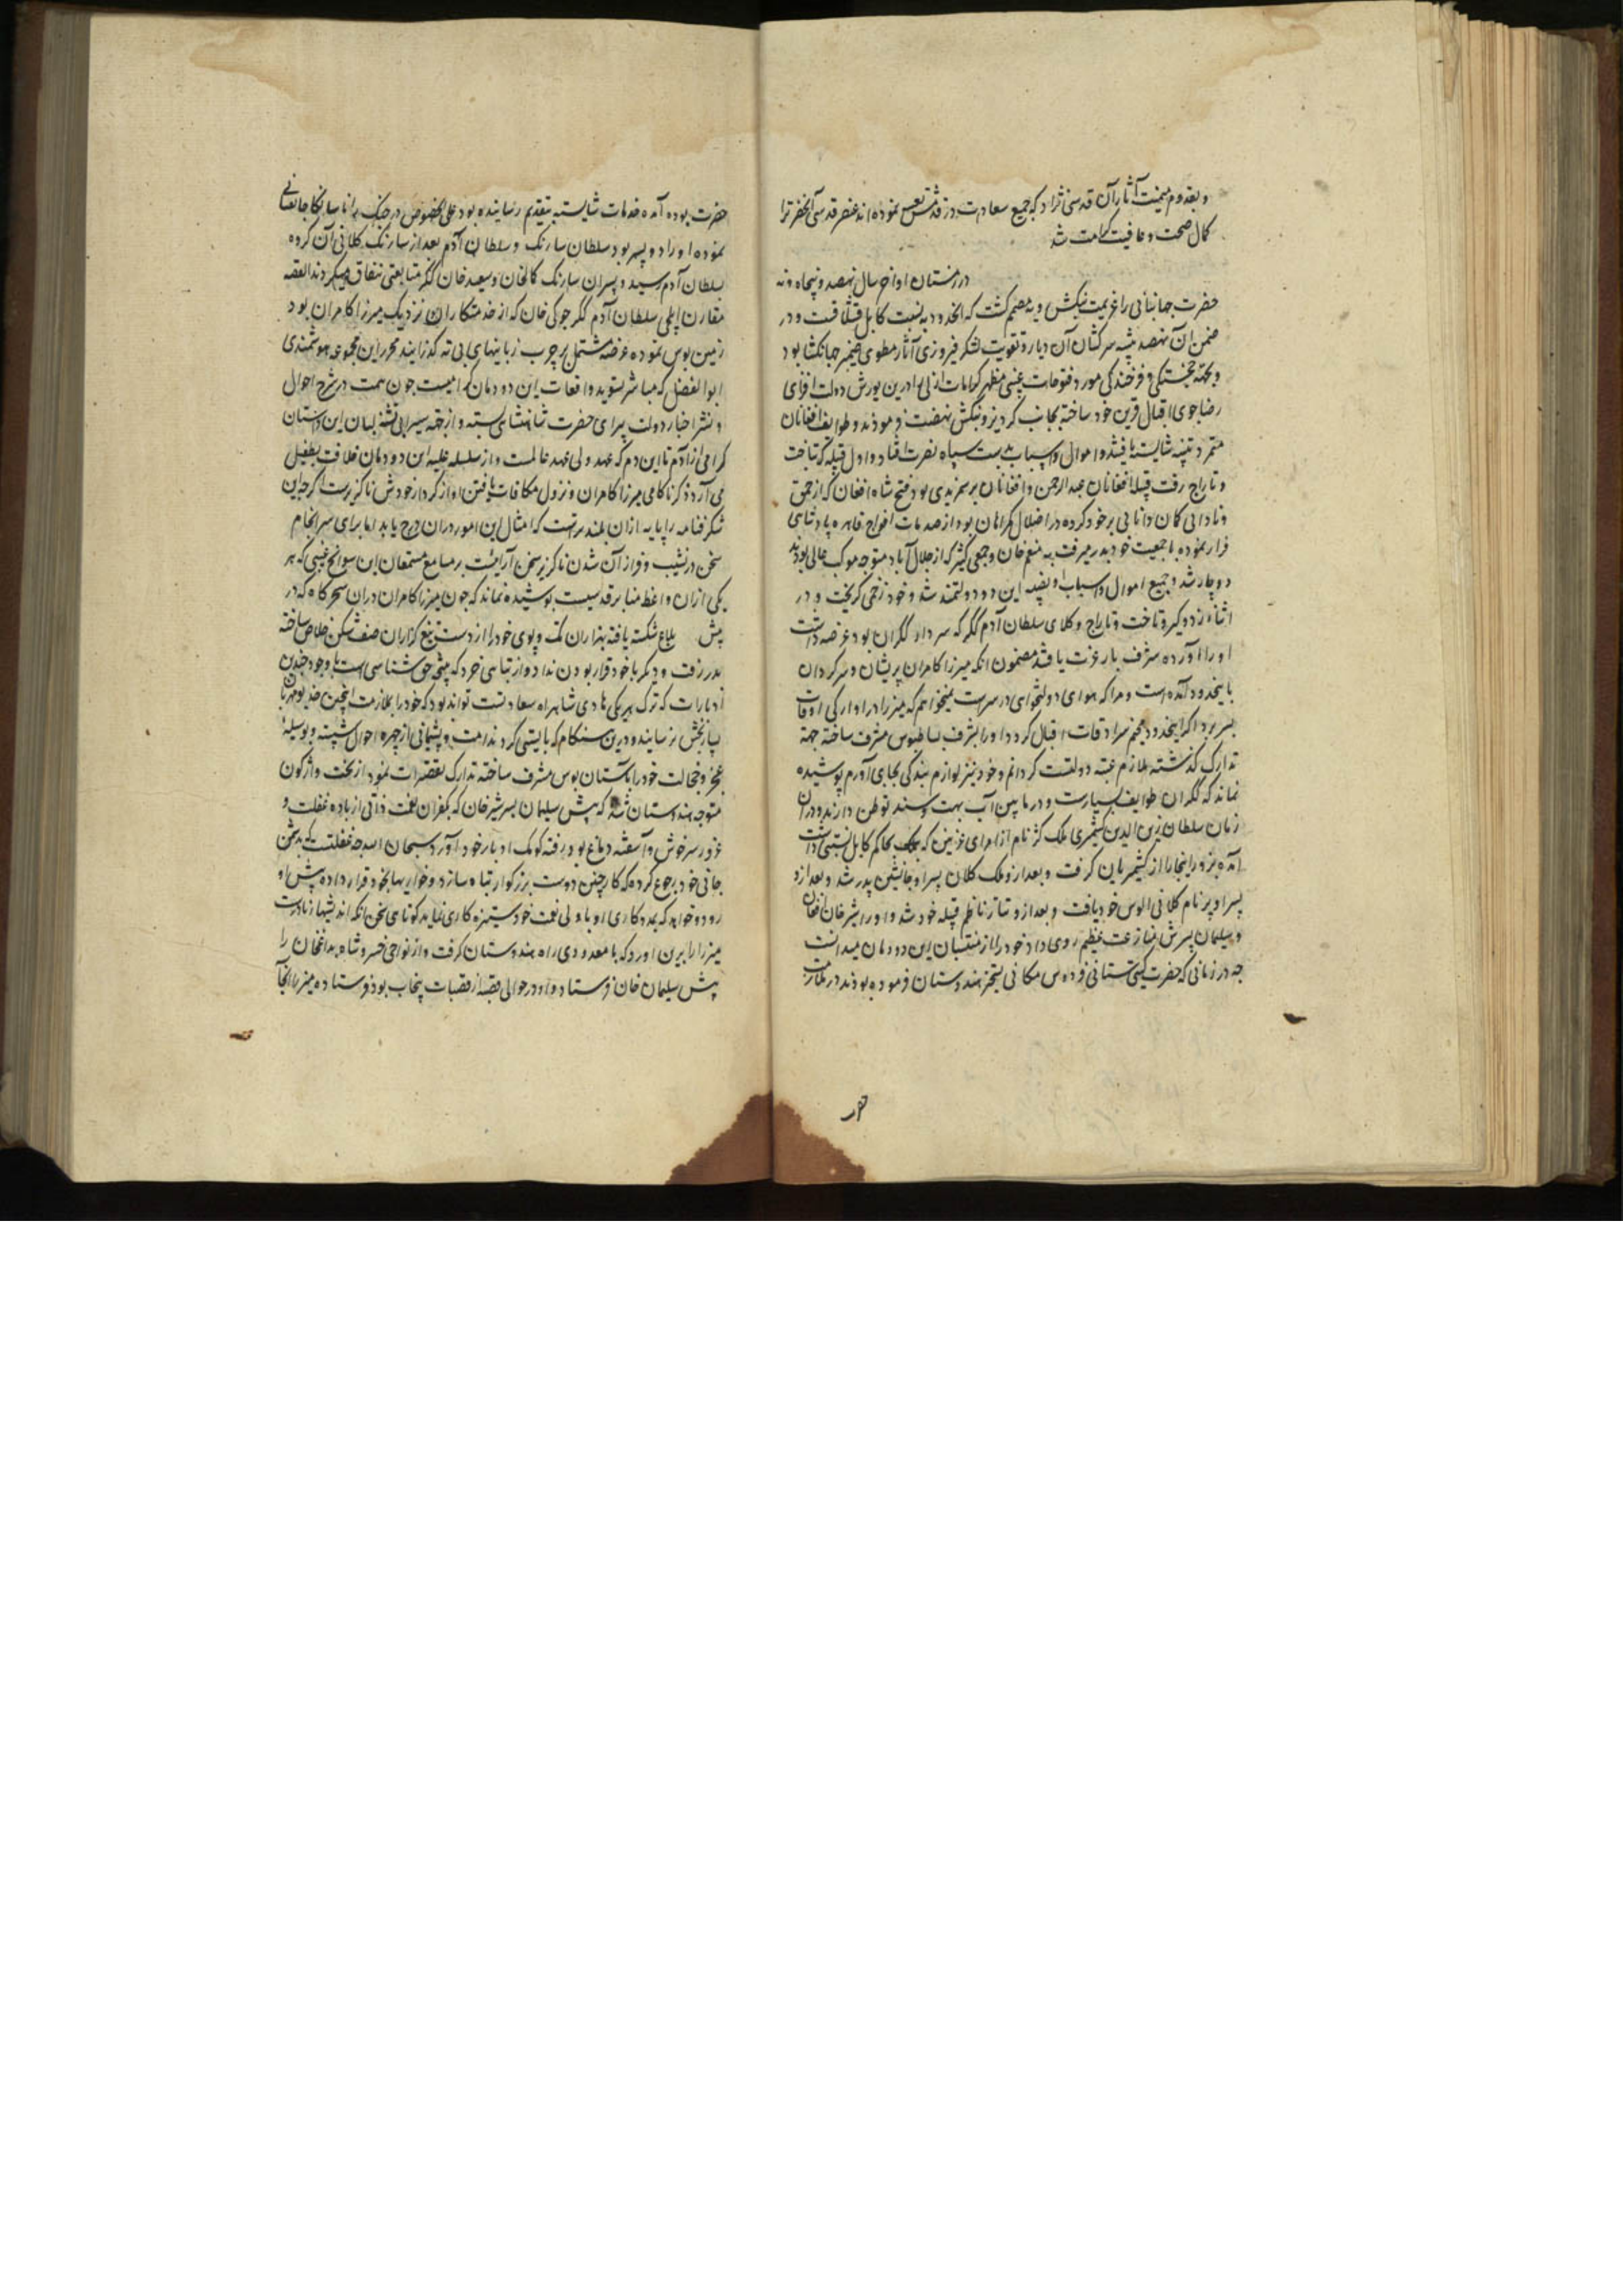 و بقدوم میمنت آثار آن قدسی نژاد که جمیع سعادت در قدمش تعین نموده اند عنصر قدسی آنحضرت را
کمال صحت و عافیت کرامت شد
در زمستان اواخر سال نهصد و پنجاه و نه
حضرت جهانبانی را عزیمت بنکش مصمم کشت که انحدود به نسبت کابل قشلاقست و در
ضمن آن تنبیه سرکشان آن دیار و تقویت لشکر فیروزی آثار مطوی ضمیر جهانکشا بود
و خجستکی و فرخندکی مورد فتوحات غیبی مظهر کرامات ازلی را درین یورش دولت افزای
رضا جوی اقبال قرین خود ساخته بجانب کردیز و بنکش نهضت فرمودند و طوایف افغانان
متمرد تنبیه شایسته یافتند و اموال و اسباب بدست سپاه نصرت افتاد و اول قبیله که تاخت
و تاراج رفت قبیله افغانان عبدالرحمن و افغانان برمزیدی بود فتح شاه افغان که از حمق
و نادانی کمان دانایی بر خود کرده در اضلال کمراهان بود از صدمات افواج قاهره پادشاهی
فرار نموده با جمعیت خود بدر میرفت به منعم خان و جمعی کثیر که از جلال آباد متوجه موکب عالی بودند
دوچار شد و جمیع اموال و اسباب او نصیب این دو دولتمند شد و خود زخمی کریخت و در
اثناء زد و کیر و تاخت و تاراج وکلای سلطان آدم ککر که سردار ککران بود عرضه داشت
او را آورده شرف بار عزت یافتند مضمون انکه میرزا کامران پریشان و سرکردان
باینحدود آمده است و مرا که هوای دولتخواهی در سر است نمیخواهم که میرزا در اوارکی اوقات
بسر برد اکر اینحدود مخیم سرادقات اقبال کردد او را بشرف بساطبوس مشرف ساخته جهة
تدارک کذشته ملازم عتبه دولتت کردانم و خود نیز لوازم بندکی بجای آورم پوشیده
نماند که ککران طوایف بسیارست و در مابین آب بهت و سند توطن دارند و در آن
زمان سلطان زین الدین کشمیری ملک کژ نام از امرای غزنین که بحاکم کابل نسبتی داشت
آمده بزور اینجا را از کشمیریان کرفت و بعد ازو ملک کلان پسر او جانشین پدر شد و بعد ازو
پسر او پیر نام کلانی الوس خود یافت و بعد ازو تتار ناظم قبیله خود شد و او را شیرخان افغان
و سلیمان پسرش منازعت عظیم روی داد خود را از منتسبان این دودمان میدانست
چه در زمانی که حضرت کیتی ستانی فردوس مکانی بتسخیر هندوستان فرموده بودند در ملازمت
حضرت بوده آمده خدمات شایسته بتقدیم رسانیده بود علی الخصوص در جنک رانا سانکا جانفشانی
نموده او را دو پسر بود سلطان سارنک و سلطان آدم بعد از سارنک کلانی آن کروه
سلطان آدم رسید و پسران سارنک کمالخان و سعید خان ککر متابعتی بنفاق میکردند القصه
مقارن ایلچی سلطان آدم ککر جوکی خان که از خدمتکاران نزدیک میرزا کامران بود
زمین بوس نموده عرضه مشتمل بر چرب زبانیهای بی ته کذرانید محرر این مجموعه هوشمندی
ابوالفضل که مباشر تسوید واقعات این دودمان کرامیست چون همت در شرح احوال
و نشر اخبار دولت پیرای حضرت شاهنشاهی بسته و از جمله سیرابی تشنه لبان این داستان
کرامی از آدم تا این دم که عهد ولی عهد عالمست و از سلسله علیه این دودمان خلافت بطفیل
می آرد ذکر ناکامی میرزا کامران و نزول مکافات یافتن او از کردار خودش ناکزیر است اکرچه این
شکرفنامه را پایه از آن بلندتر است که امثال این امور در آن درج یابد اما برای سرانجام
سخن در نشیب و فراز آن شدن ناکزیر سخن آرائیست بر مسامع مستمعان این سوانح غیبی که هر
یکی از آن واعظ منابر قدسیست پوشیده نماند که چون میرزا کامران در آن سحرکاه که در
پیش شکسته یافته بهزاران تک و پوی خود را از دست تیغ کزاران صف شکن خلاص ساخته
بدر رفت و دیکر با خود قرار بودن نداد و از تباهی خرد که حق شناسی است با وجود چندین
ادبارات که ترک هر یکی هادی شاهراه سعادتست تواند بود که خود را بملازمت اینچنین خدیو مهربان
بسیار بخش نرسانید و درین هنکام که بایستی کرد ندامت و پشیمانی از چهره احوال شسته و بوسیله
عجز و خجالت خود را بآستان بوس مشرف ساخته تدارک تقصیرات نمود از بخت واژکون
متوجه هندوستان شد که پیش سلیمان پسر شیرخان که بکفران نعمت ذاتی از باده غفلت و
غرور سرخوش و آشفته دماغ بود رفته کومک ادبار خود آورد سبحان الله چه غفلتست که بدشمن
جانی خود رجوع کرده که کار چنین دوست بزرکوار تباه سازد و خواریها بخود قرار داده پیش او
رود و خواهد که بمددکاری او با ولی نعمت خود ستیزه کاری نماید کوتاهی سخن انکه اندیشهاء نادرست
میرزا را برین آورد که با معدودی راه هندوستان کرفت و از نواحی خسرو شاه بداغخان را
پیش سلیمان خان فرستاد و او در حوالی قصبه از قصبات پنجاب بود فرستاده میرزا انجا